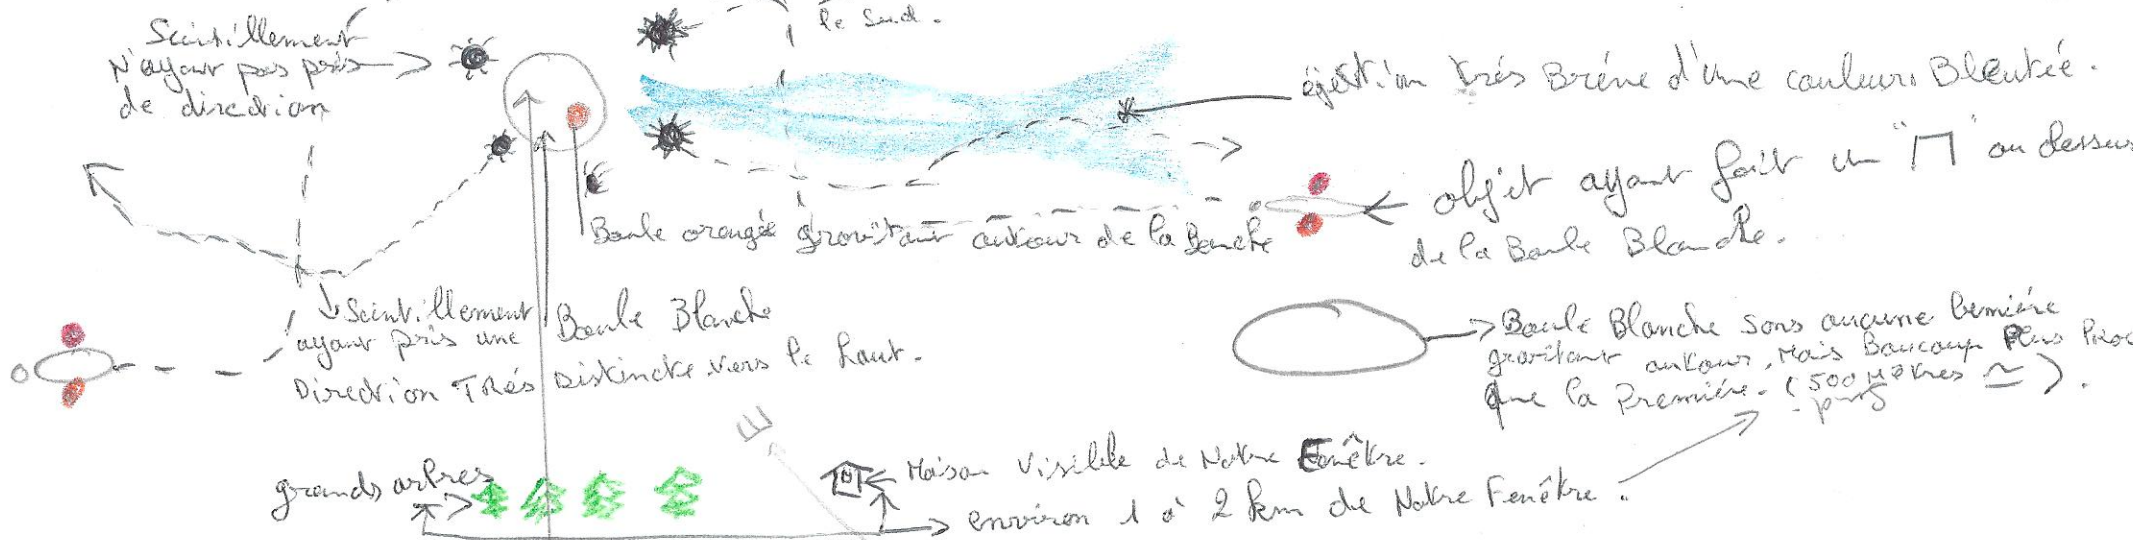 le Sud.
Scintillement
N'ayant pas pris
de direction
éjection très Brève d'une couleurs Bleutée.
objet ayant fait un "Π" au dessus
de la Boule Blanche.
Boule orangée gravitant autour de la Blanche
Scintillement
ayant pris une
Direction TRés Distincte vers le haut.
Boule Blanche
Boule Blanche sans aucune lumière
gravitant autour, Mais Baucoup Plus Proc
que la Première. (500 Mètres ≃).
E
grands arbres
Maison Visible de Notre Fenêtre.
environ 1 à 2 km de Notre Fenêtre.